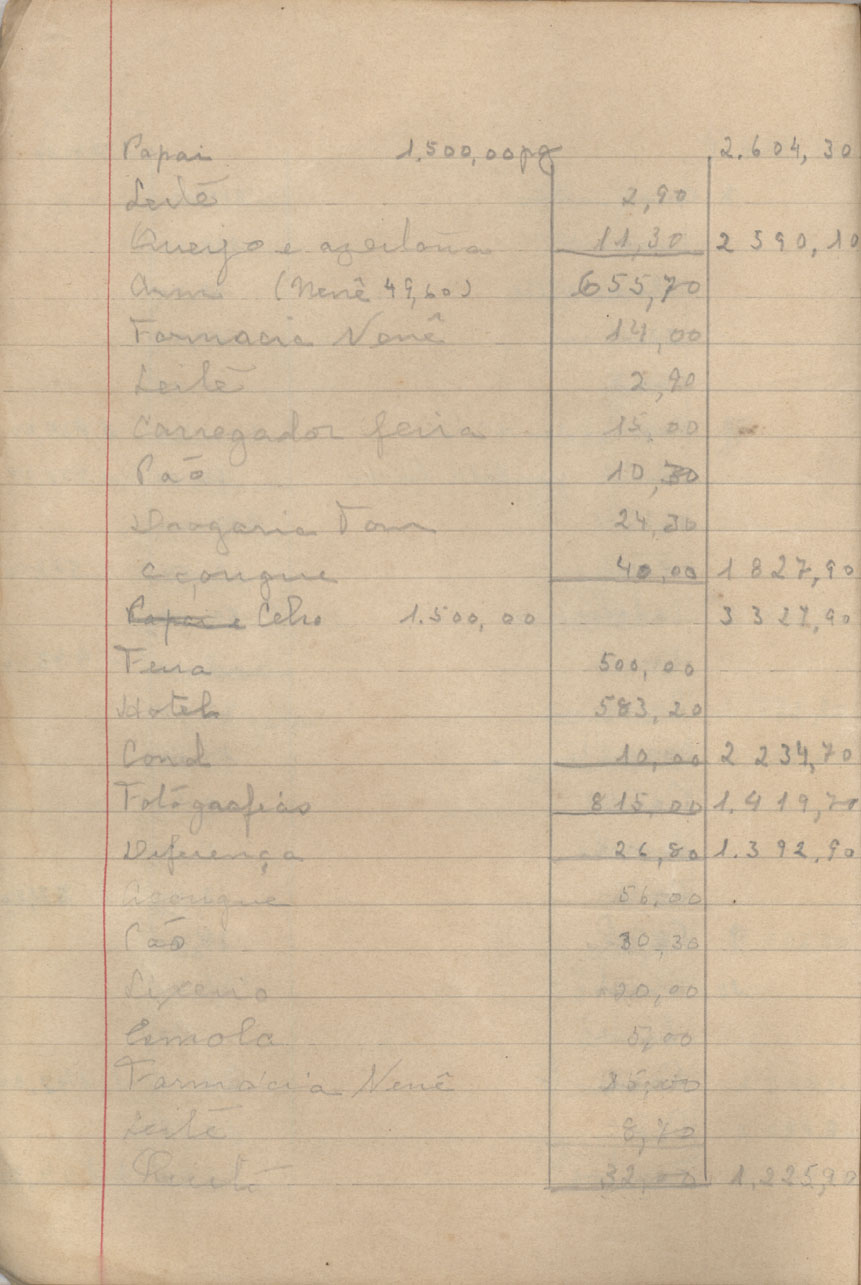 Papai 1.500,00 pg 2.604,30
Leitê 2,90
Queijo e azeitona 11,30 2 590,10
Arm (Nenê 49,60) 655,70
Farmacia Nenê 14,00
Leitê 2,90
Carregador feira 15,00
Pão 10,30
Drogaria Tom 24,30
Açougue 40,00 1 827,90
Papai e Celso 1.500,00 3 327,90
Feira 500,00
Hotel 583,20
Cond 10,00 2 234,70
Fotógrafias 815,00 1.419,70
Diferença 26,80 1.392,90
Açougue 56,00
Pão 30,30
Lixeiro 20,00
Esmola 5,00
Farmácia Nenê 15,00
Leitê 8,70
32,00 1.225,90